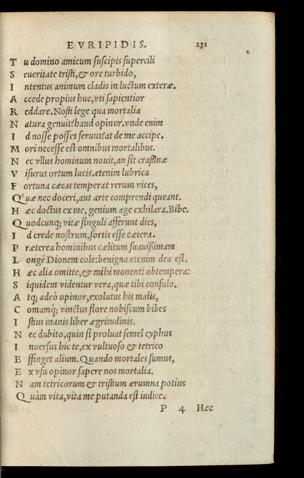 EVRIPIDIS. 231
Tu domino amicum suscipis supercili
Seueritate tristi, & ore turbido,
Intentus animum cladis in luctum exteræ.
Accede propius huc, vti sapientior
Reddare. Nosti lege qua mortalia
Natura genuit? haud opinor. vnde enim
Id nosse posses seruus? at de me accipe.
Mori necesse est omnibus mortalibus.
Nec vllus hominum nouit, an sit crastinæ
Visurus ortum lucis. etenim lubrica
Fortuna cæcas temperat rerum vices,
Quæ nec doceri, aut arte comprendi queant.
Hæc doctus ex me, genium age exhilara. Bibe.
Quodcunq; vitæ singuli afferunt dies,
Id crede nostrum, sortis esse cætera.
Præterea hominibus cælitum suauissimam
Longè Dionem cole: benigna etenim dea est.
Hæc alia omitte, & mihi monenti obtempera:
Siquidem videntur vera, quæ tibi consulo.
Atq; adeò opinor, exolutus his malis,
Comamq; vinctus flore nobiscum bibes
Istius inanis liber ægritudinis.
Nec dubito, quin si proluat semel cyphus
Inuersus hic te, ex vultuoso & tetrico
Effinget alium. Quando mortales sumus,
Ex vsu opinor sapere nos mortalia.
Nam tetricorum & tristium ærumna potius
Quàm vita, vita me putanda est iudice.
P 4 Hæc